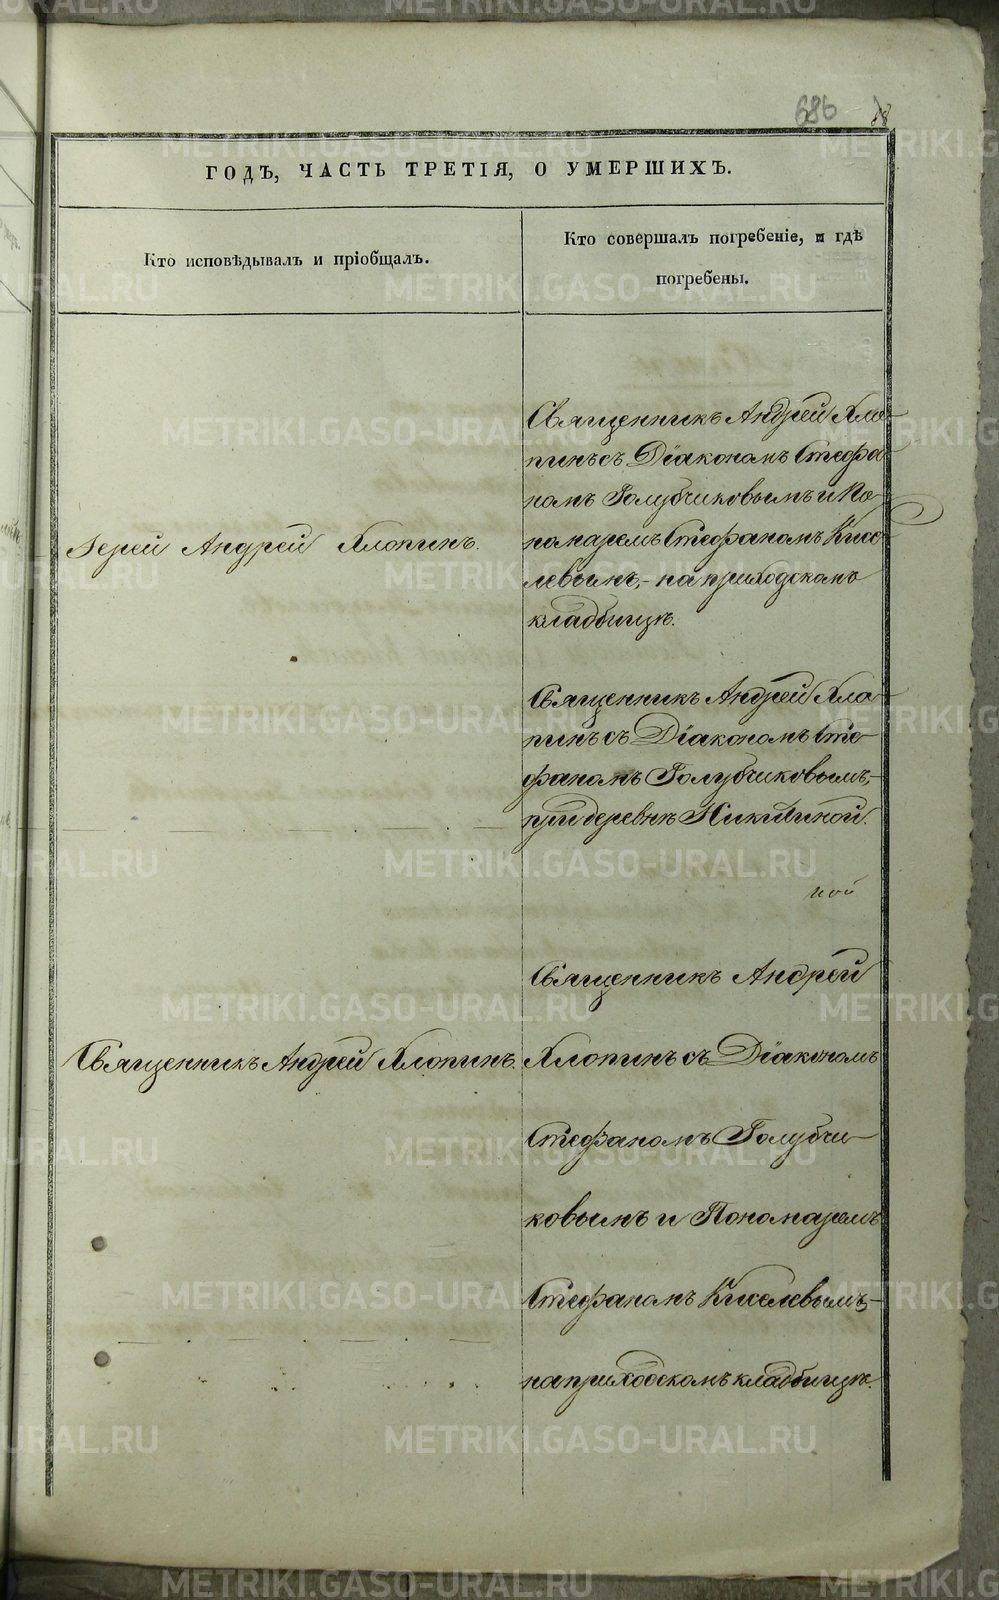 686
ГОДЪ, ЧАСТЬ ТРЕТІЯ, О УМЕРШИХЪ.
Кто исповѣдывалъ и пріобщалъ.
Кто совершалъ погребеніе, и гдѣ
погребены.
Священникъ Андрей Хло-
пинъ съ Діакономъ Стефа
номъ Голубчиковымъ и По-
Іерей Андрей Хлопинъ.
номаремъ Стефаномъ Кисе
левымъ,- на приходскомъ
кладбищѣ.
Священникъ Андрей Хло-
пинъ съ Діакономъ Сте-
фаномъ Голубчиковымъ,-
при деревнѣ Никитиной.
ной
Священникъ Андрей
Священникъ Андрей Хлопинъ.
Хлопинъ съ Діакономъ
Стефаномъ Голубчи-
ковымъ и Пономаремъ
Стефаномъ Киселевымъ,-
на приходскомъ кладбищѣ.
METRIKI.GASO-URAL.RU